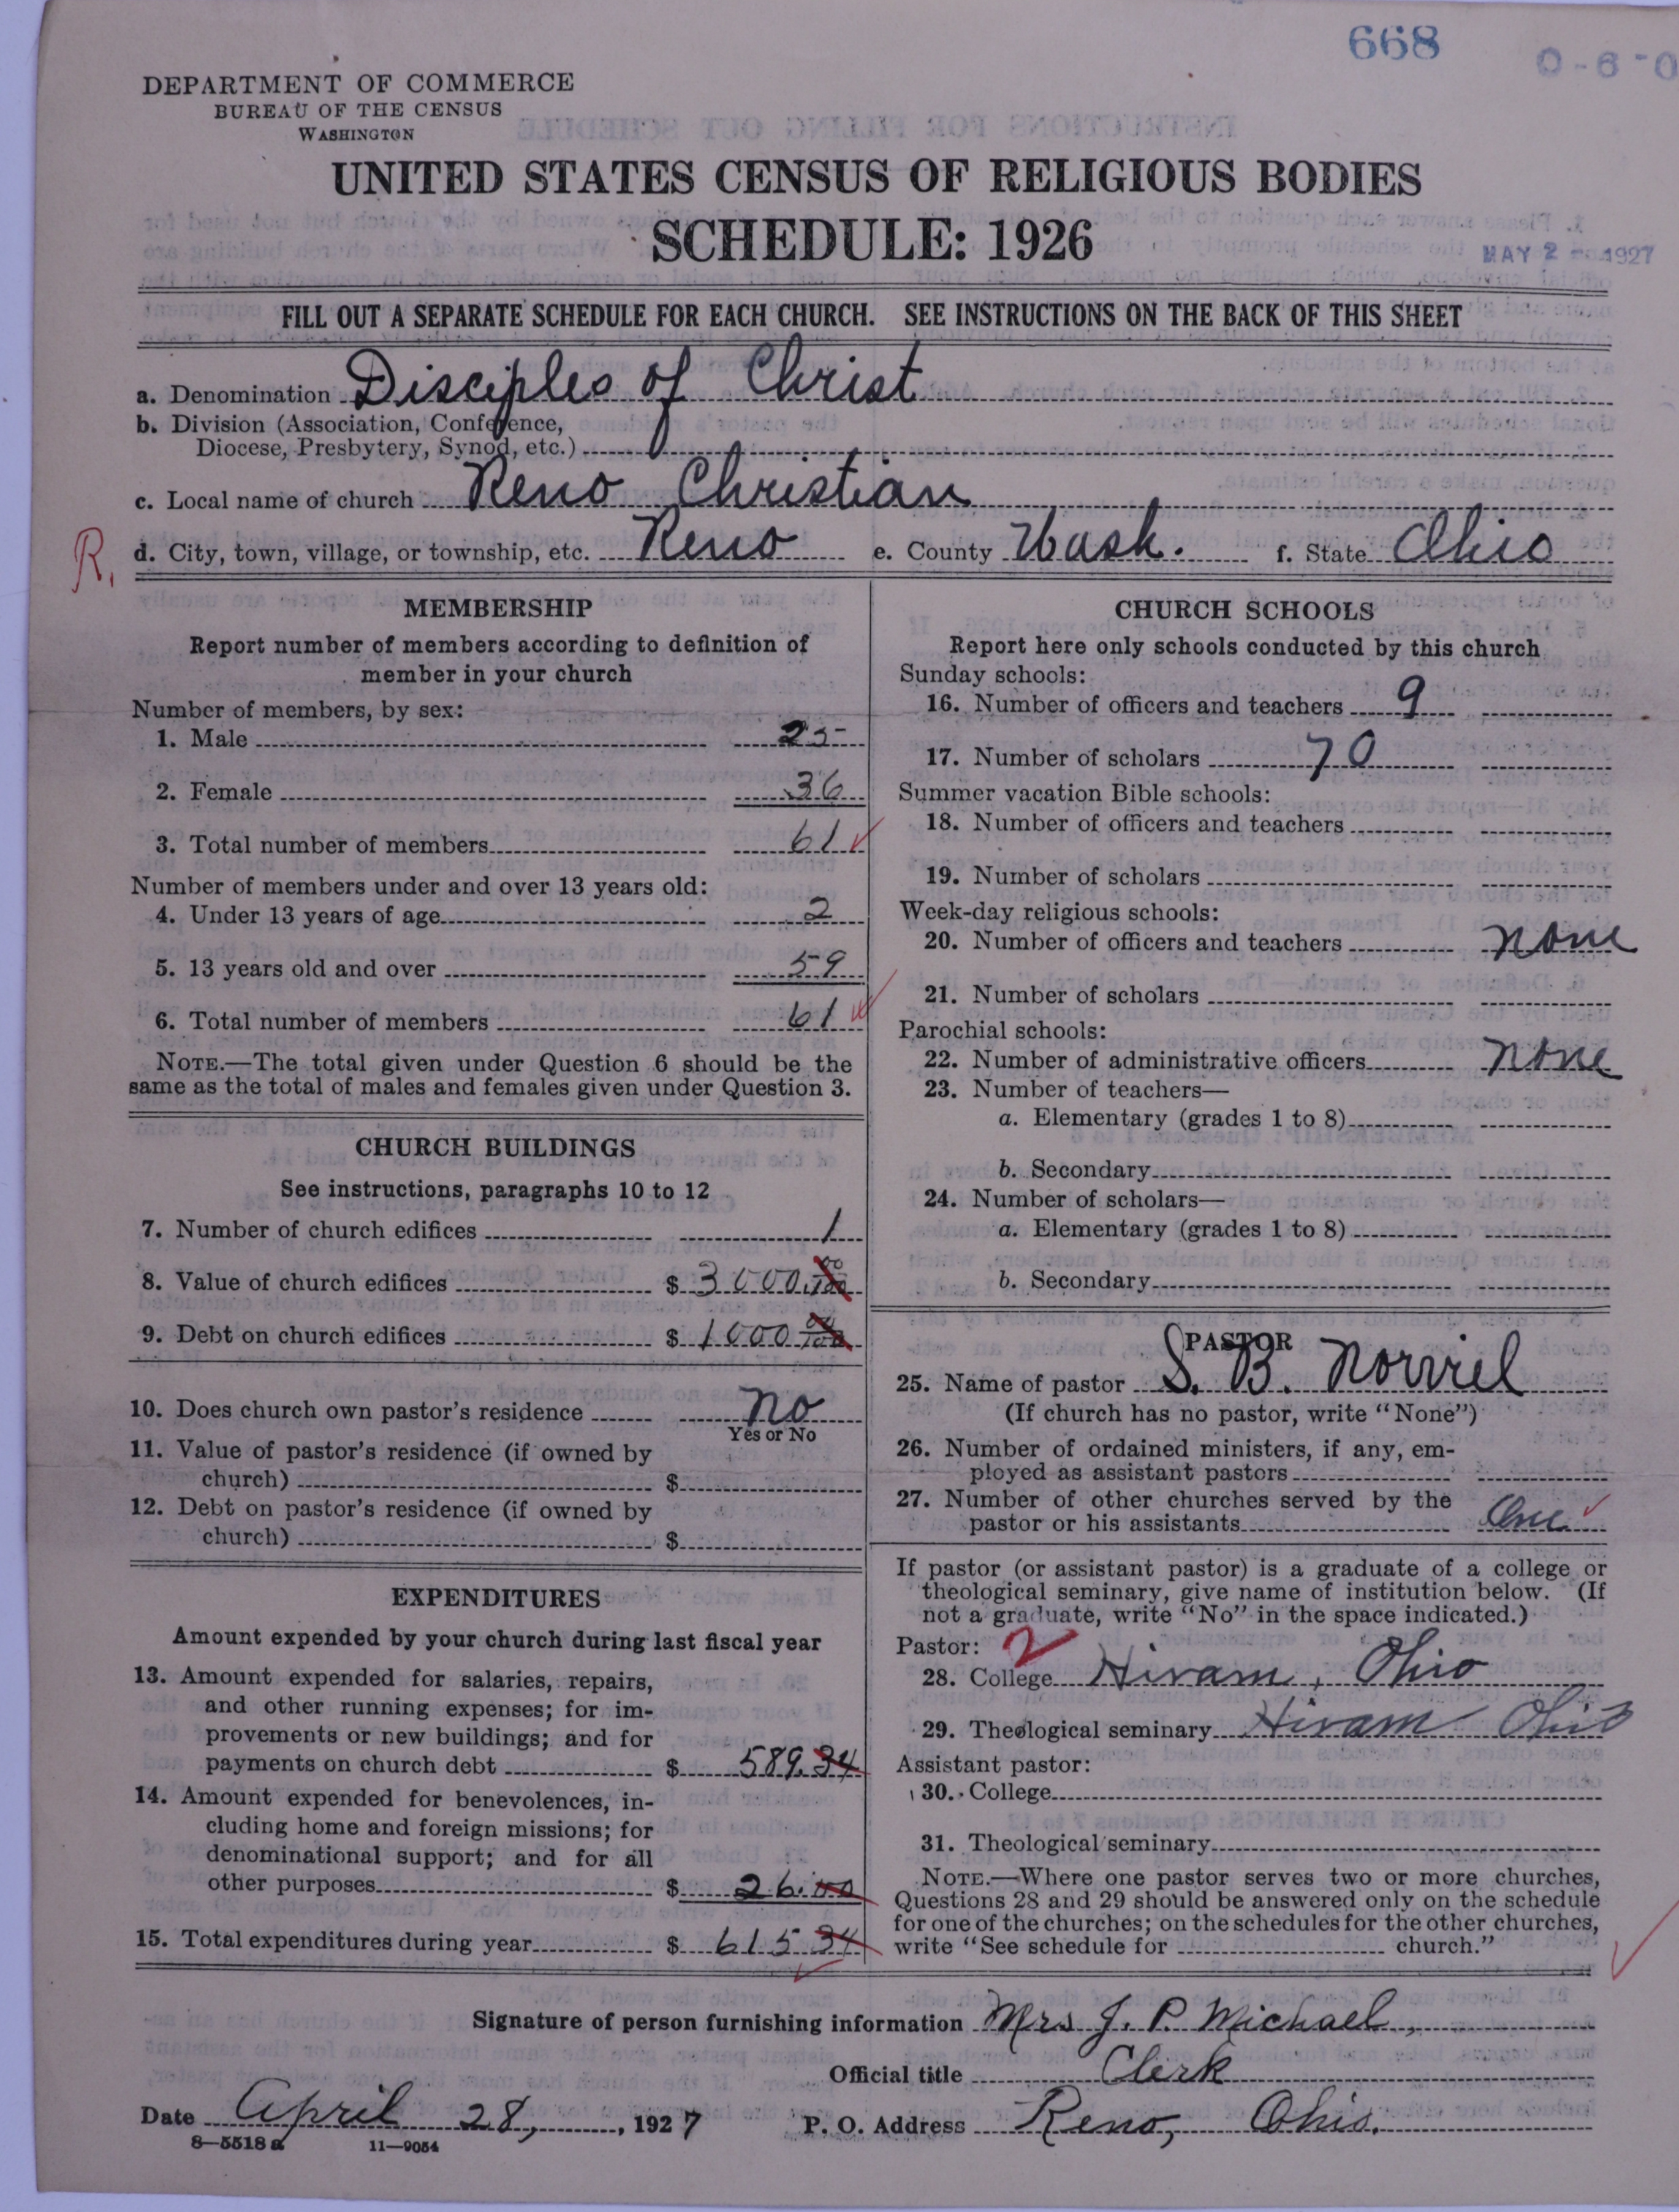 668
0-6-0
DEPARTMENT OF COMMERCE
BUREAU OF THE CENSUS
WASHINGTON
UNITED STATES CENSUS OF RELIGIOUS BODIES
SCHEDULE: 1926
MAY 2 1927
FILL OUT A SEPARATE SCHEDULE FOR EACH CHURCH. SEE INSTRUCTIONS ON THE BACK OF THIS SHEET
a. Denomination Disciples of Christ
b. Division (Association, Conference,
Diocese, Presbytery, Synod, etc.)
c. Local name of church Reno Christian
R. d. City, town, village, or township, etc. Reno e. County Wash. f. State Ohio
MEMBERSHIP
Report number of members according to definition of
member in your church
Number of members, by sex:
1. Male 25
2. Female 36
3. Total number of members 61
Number of members under and over 13 years old:
4. Under 13 years of age 2
5. 13 years old and over 59
6. Total number of members 61
NOTE.—The total given under Question 6 should be the
same as the total of males and females given under Question 3.
CHURCH BUILDINGS
See instructions, paragraphs 10 to 12
7. Number of church edifices 1
8. Value of church edifices $ 3000.00/100
9. Debt on church edifices $ 1000 00/100
10. Does church own pastor's residence no
Yes or No
11. Value of pastor's residence (if owned by
church) $
12. Debt on pastor's residence (if owned by
church) $
EXPENDITURES
Amount expended by your church during last fiscal year
13. Amount expended for salaries, repairs,
and other running expenses; for im-
provements or new buildings; and for
payments on church debt $ 589.34
14. Amount expended for benevolences, in-
cluding home and foreign missions; for
denominational support; and for all
other purposes $ 26.00
15. Total expenditures during year $ 615 34
CHURCH SCHOOLS
Report here only schools conducted by this church
Sunday schools:
16. Number of officers and teachers 9
17. Number of scholars 70
Summer vacation Bible schools:
18. Number of officers and teachers
19. Number of scholars
Week-day religious schools:
20. Number of officers and teachers none
21. Number of scholars
Parochial schools:
22. Number of administrative officers none
23. Number of teachers—
a. Elementary (grades 1 to 8)
b. Secondary
24. Number of scholars—
a. Elementary (grades 1 to 8)
b. Secondary
PASTOR
25. Name of pastor S. B. Norviel
(If church has no pastor, write "None")
26. Number of ordained ministers, if any, em-
ployed as assistant pastors
27. Number of other churches served by the
pastor or his assistants One
If pastor (or assistant pastor) is a graduate of a college or
theological seminary, give name of institution below. (If
not a graduate, write "No" in the space indicated.)
Pastor: 2
28. College Hiram, Ohio
29. Theological seminary Hiram Ohio
Assistant pastor:
30. College
31. Theological seminary
NOTE.—Where one pastor serves two or more churches,
Questions 28 and 29 should be answered only on the schedule
for one of the churches; on the schedules for the other churches,
write "See schedule for church."
Signature of person furnishing information Mrs J. P. Michael,
Official title Clerk
Date April 28, 1927 P. O. Address Reno, Ohio.
8—5518 a 11—9054